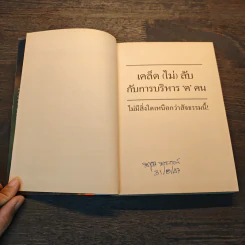 เคล็ด (ไม่) ลับ
กับการบริหาร 'ค' ฅน
ไม่มีสิ่งใดเหนือกว่าสัจธรรมนี้!